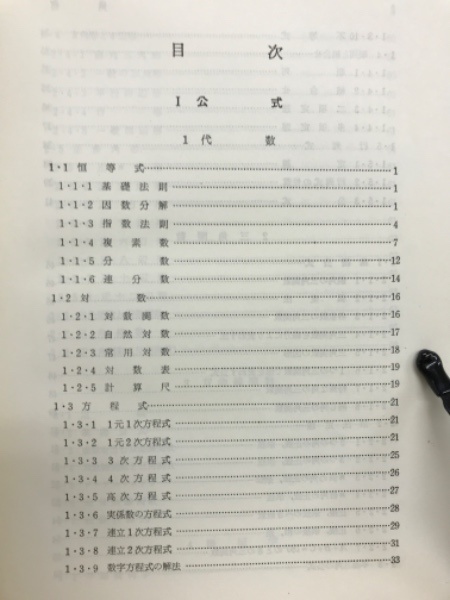 目 次
I 公 式
1 代 数
1・1 恒 等 式 1
1・1・1 基 礎 法 則 1
1・1・2 因 数 分 解 1
1・1・3 指 数 法 則 4
1・1・4 複 素 数 7
1・1・5 分 数 12
1・1・6 連 分 数 14
1・2 対 数 16
1・2・1 対 数 関 数 16
1・2・2 自 然 対 数 17
1・2・3 常 用 対 数 18
1・2・4 対 数 表 19
1・2・5 計 算 尺 19
1・3 方 程 式 21
1・3・1 1元1次方程式 21
1・3・2 1元2次方程式 21
1・3・3 3 次 方 程 式 25
1・3・4 4 次 方 程 式 26
1・3・5 高 次 方 程 式 27
1・3・6 実係数の方程式 28
1・3・7 連立1次方程式 29
1・3・8 連立2次方程式 31
1・3・9 数字方程式の解法 33